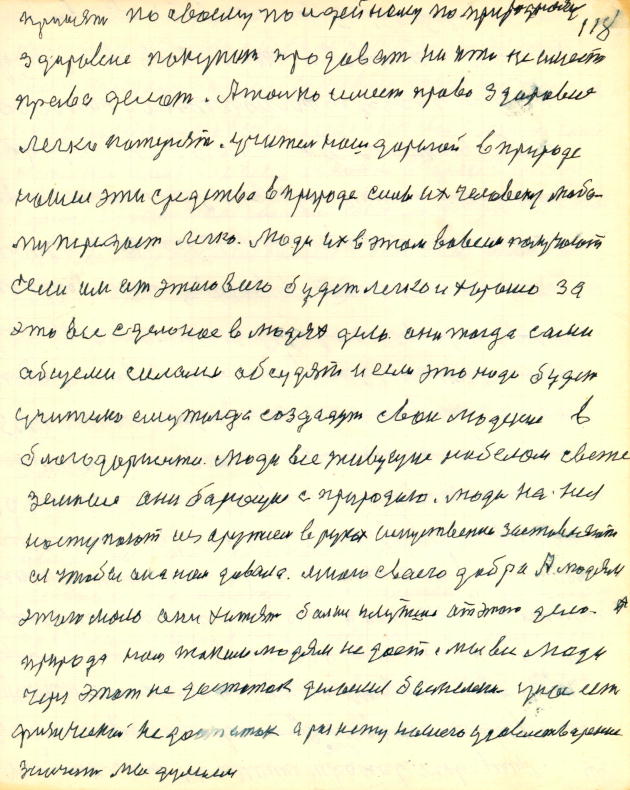 118
принят по своему по идейному по природному
здоровие покупит продоват ни кто не имеет
права делат. А толко имеет право здоровия
легко потерят. учител наш дорогой в природе
нашел эти средства в природе силы их человеку любо
му передает легко. Люди их в этом во всем получают
если им от этого всего будет легко и хорошо за
это все сделоное в людях дело они тогда сами
общеми силами обсудят и если это надо будет
учителю ему тогда создадут свои людские в
благодарности. Люди все живущие на белом свете
земные они борющие с природаю. Люди на ния
наступают из аружием в руках искуственно заставляют
ее чтобы она нам давала. много своего добра А людям
этого мало они хитят болии от этого дело. А
природа нам таким людям не дает. мы все люди
через этот не достаток делаимся балнеми у нас ест
физический не достаток а раз нету нашего удовлетварение
значит мы думаем